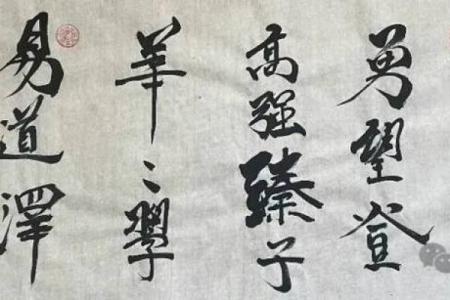 勇望登
高强臻子
莘〻學
易道澤